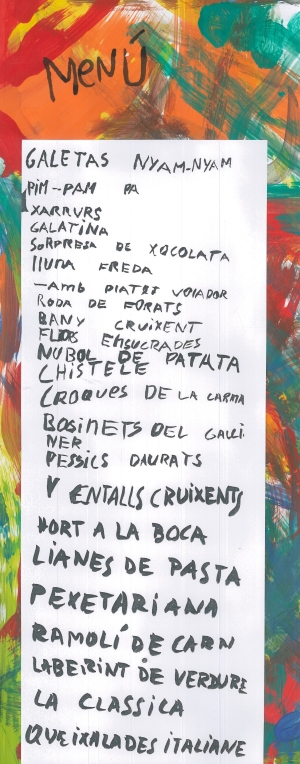 MENÚ
GALETAS NYAM-NYAM
PIM-PAM PA
XARRURS
GALATINA
SORPRESA DE XOCOLATA
LLUNA FREDA
-AMB PLATET VOLADOR
RODA DE FORATS
BANY CRUIXENT
FLOS ENSUCRADES
NUBOL DE PATATA
CHISTELE
CROQUES DE LA CARMA
BOSINETS DEL GALLI
NER
PESSICS DAURATS
VENTALLS CRUIXENTS
HORT A LA BOCA
LIANES DE PASTA
PEXETARIANA
RAMOLÍ DE CARN
LABERINT DE VERDURE
LA CLASSICA
QUEIXALADES ITALIANE